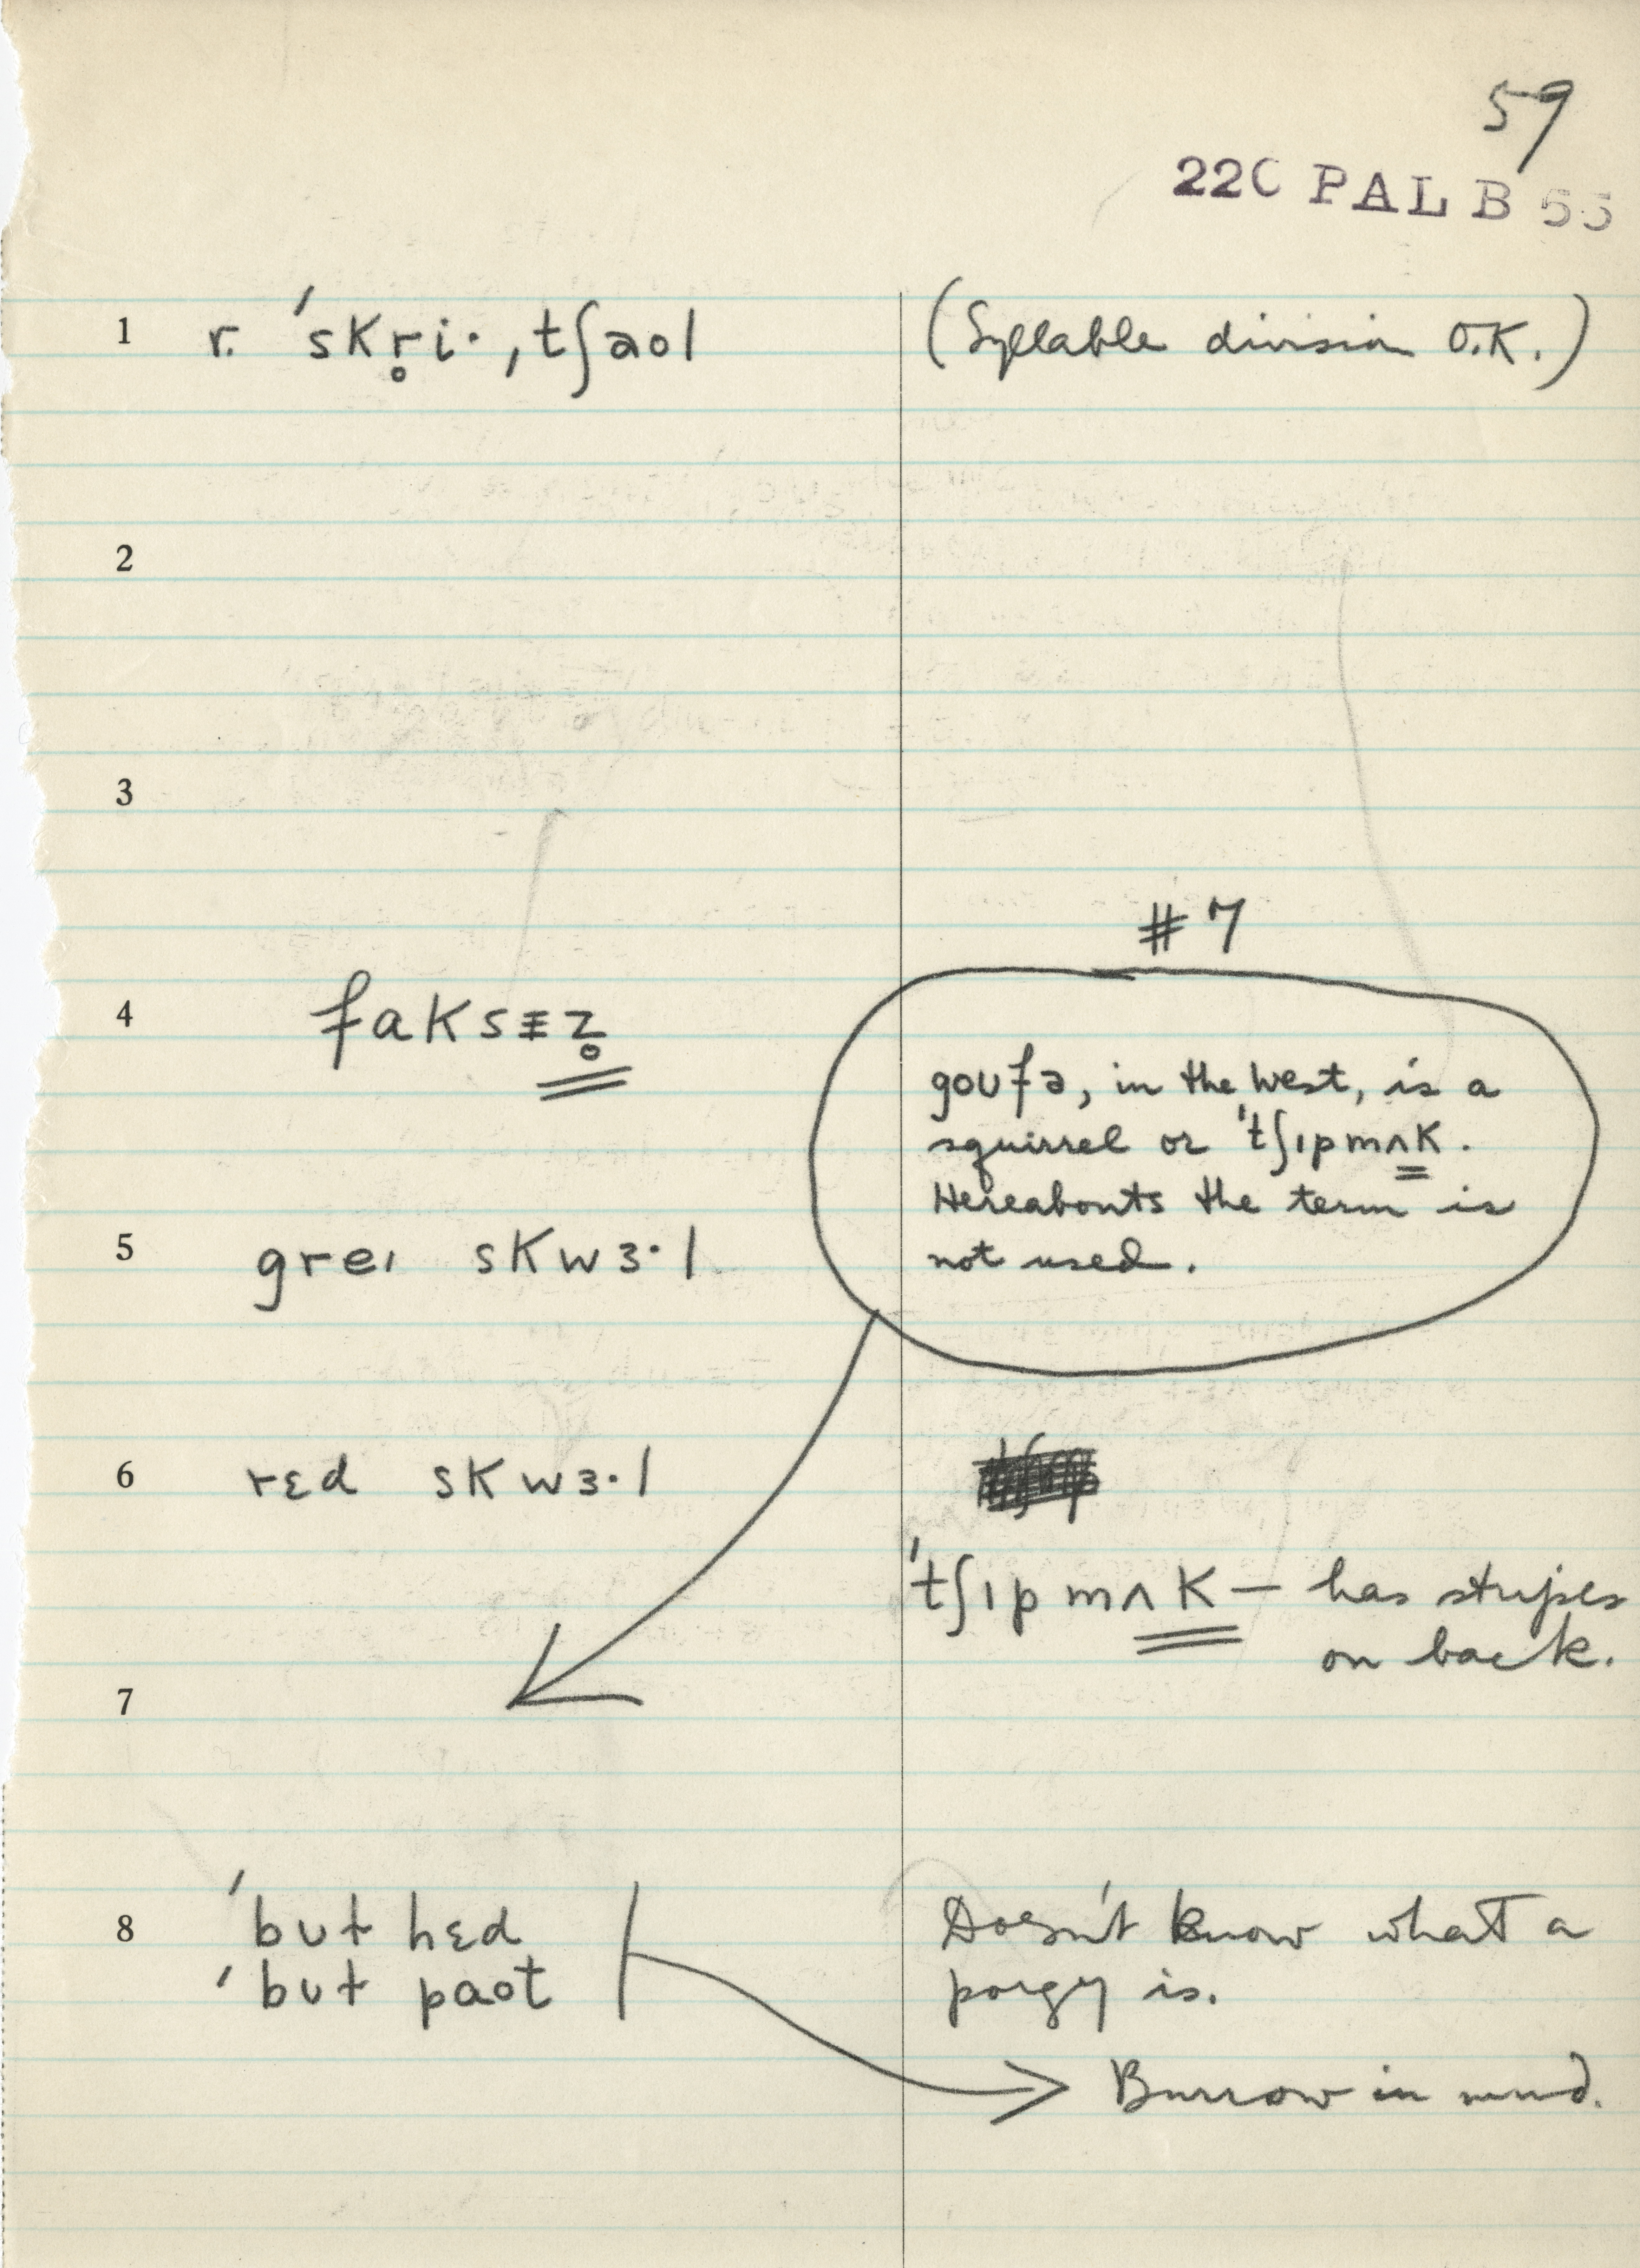 59
22C PAL B 55
1 r. ˈskr̥i·ˌtʃaol (Syllable division O.K.)
2
3
#7
4 faksɪz̥
goʊfə, in the West, is a
squirrel or ˈtʃɪpmʌk.
Hereabouts the term is
not used.
5 greɪ skwɜ·l
6 rɛd skwɜ·l
ˈtʃɪpmʌk — has stripes
on back.
7
8 ˈbʊthɛd Doesn't know what a
ˈbʊtpaot porgy is.
Burrow in mud.